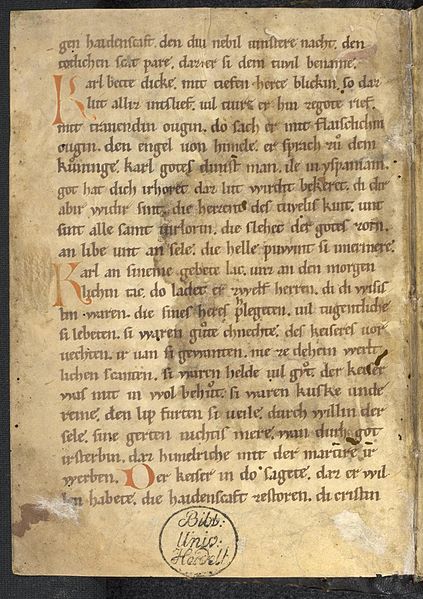 gen haidenscaft. den diu nebil uinstere nacht. den
totlichen scat pare. daz er si dem tiuil bename.
Karl bette dicke. mit tiefen herce blickin. so daz
liut allez intslief. uil tiure er hin ze gote rief.
mit trahendin ougin. do sach er mit flaisclichin
ougin. den engel uon himele. er sprach zů dem
kůninge. karl gotes dinist man. ile in yspaniam.
got hat dich irhoret. daz liut wirdit bekeret. di dir
abir widir sint. die heizent des tiuelis kint. unt
sint alle samt uirlorin. die slehet der gotes zorn.
an libe unt an sele. die helle puwint si imermere.
Karl an sineme gebete lac. unz an den morgen
lichin tac. do ladet er zwelf herren. di di wisis
tin waren. die sines heres phlegeten. uil tugentliche
si lebeten. si waren gůte chnechte. des keiseres uor
uechten. ir uan si gewanten. nie ze dehein wert
lichen scanten. si waren helde uil gůt. der keiser
was mit in wol behůt. si waren kuske unde
reine. den lip furten si ueile. durch willin der
sele. sine gerten nichtis mere. wan durh got
irsterbin. daz himelriche mit der martire ir
werben. Der keiser in do sagete. daz er wil
len habete. die haidenscaft zestoren. di cristin
Bibl:
Univ:
Heidelb